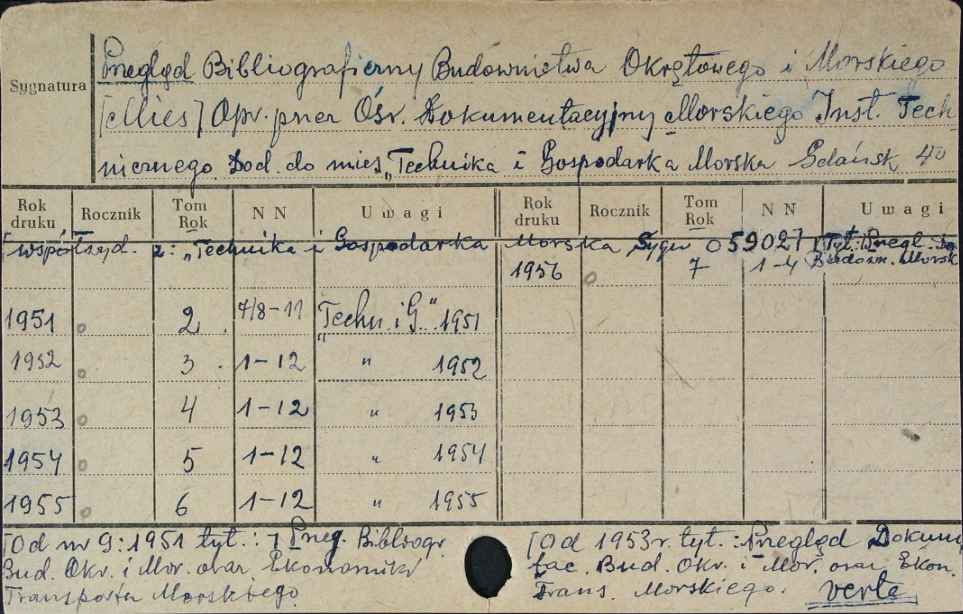 Sygnatura
Przegląd Bibliograficzny Budownictwa Okrętowego i Morskiego
[Mies] Opr. przez Ośr. Dokumentacyjny Morskiego Inst. Tech
nicznego. Dod. do mies. "Technika i Gospodarka Morska Gdańsk 4o
Rok druku Rocznik Tom Rok NN Uwagi Rok druku Rocznik Tom Rok NN Uwagi
[współrzyd. z: "Technika i Gospodarka Morska Sygn O 59027] [Tyt: Przegl.
1956 o 7 1-4 Budown. Morsk
1951 o 2. 7/8-11 "Techn. i G." 1951
1952 o 3. 1-12 " 1952
1953 o 4 1-12 " 1953
1954 o 5 1-12 " 1954
1955 o 6 1-12 " 1955
[Od nr 9:1951 tyt.: Przeg. Bibliogr.
Bud. Okr. i Mor. oraz Ekonomiki
Transportu Morskiego
[Od 1953 r. tyt.: Przegląd Dokumen
tac. Bud. Okr. i Mor. oraz Ekon.
Trans. Morskiego. verte